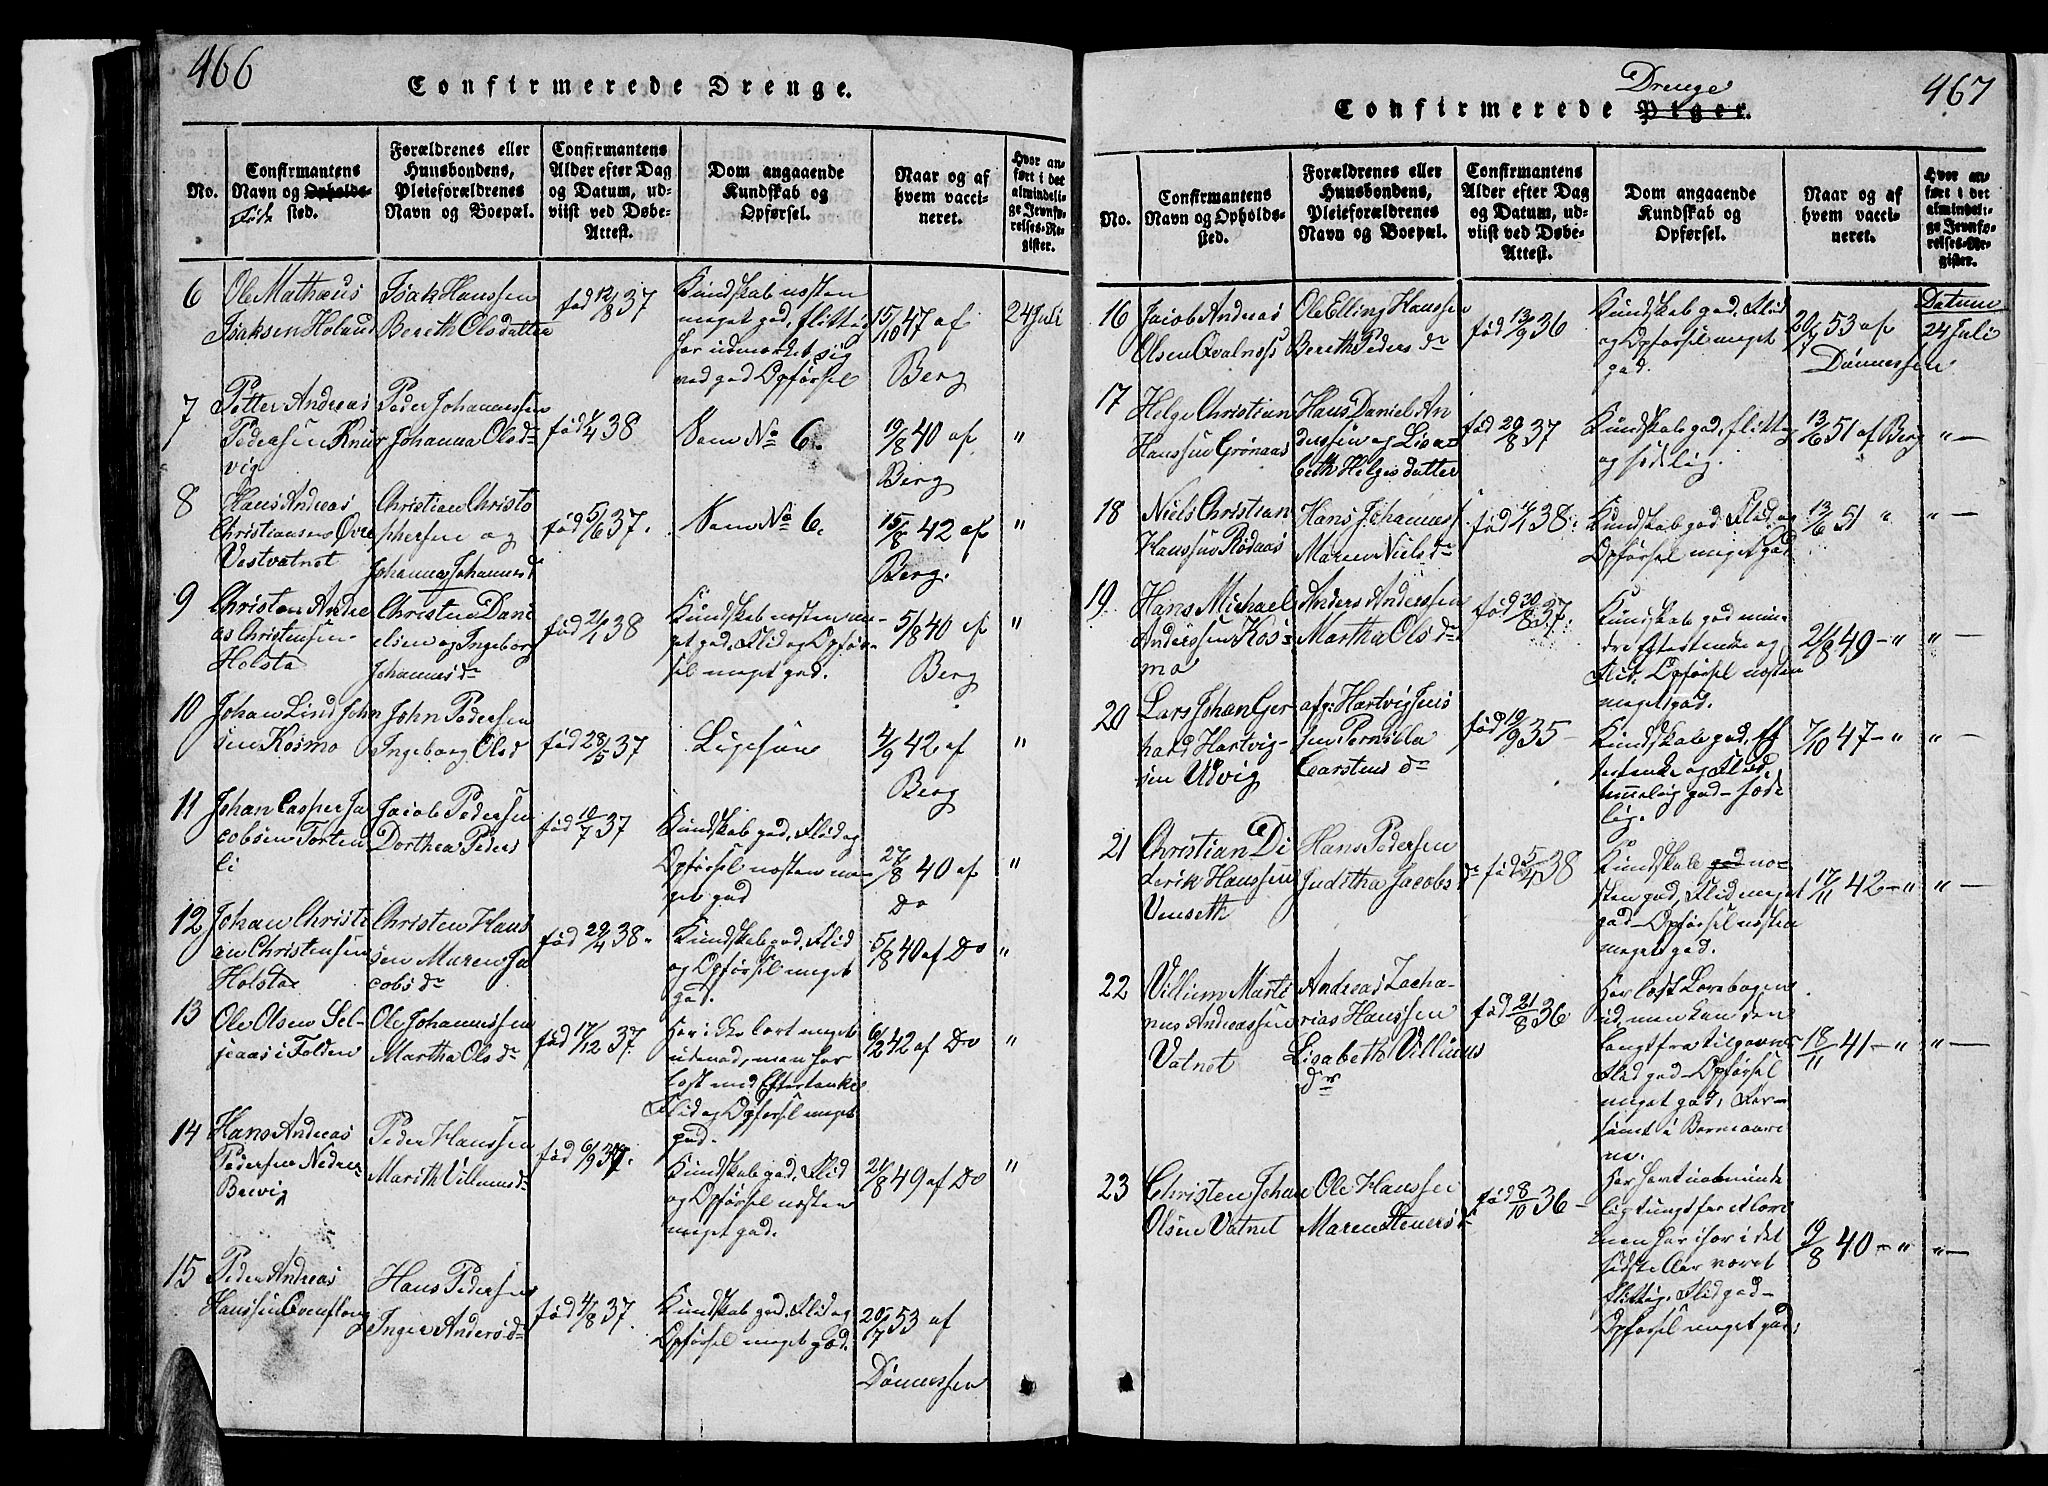 466
Confirmerede Drenge.
No.
Confirmantens Navn og Opholds-sted.
Forældrenes eller Huusbondens, Pleieforældrenes Navn og Boepæl.
Confirmantens Alder efter Dag og Datum, udviist ved Døbe-Attest.
Dom angaaende Kundskab og Opførsel.
Naar og af hvem vaccineret.
Hvor anført i det almindelige Jevnførelses-Register.
6
Ole Mathæus
Isak Hanssen
Bereth Olsdatter
fød 12/8 37
Kundskab næsten
meget god, flittig
har udmærket sig
ved god Opførsel
15/10 47 af
Berg
24 Juli
7
Petter Andreas
Pedersen
Peder Johannessen
Johanna Olsd
fød 1/4 38
Som No 6.
19/8 40 af
Berg
"
8
Hans Andreas
Christiansen Øvre
Vestvatnet
Christian Christo
phersen og
Johanna Johannesd
fød 5/6 37.
Som No 6.
15/8 42 af
Berg.
"
9
Christen Andre
as Christensen
Holstad
Christen Dani
elsen og Ingeborg
Johannesd
fød 21/1 38
Kundskab næsten me-
get god, Flid og Opfør-
sel meget god.
5/8 40 af
Berg
"
10
Johan Lind John
sen Kosmo
John Pedersen
Ingeborg Olsd
fød 28/5 37
Ligesaa
4/9 42 af
Berg
"
11
Johan Casper Ja
cobsen Torten
li
Jacob Pedersen
Dorthea Peders
fød 10/7 37
Kundskab god, Flid og
Opførsel næsten me-
get god
27/8 40 af
Do
"
12
Johan Christi
an Christensen
Holstad
Christen Hans
sen Maren Ja
cobsd
fød 29/4 38.
Kundskab god, Flid
og Opførsel meget
god.
5/8 40 af Do
"
13
Ole Olsen Sel-
jeaas i Folden
Ole Johannessen
Martha Olsd
fød 17/12 37.
Har ikke lært meget
udenad, men har
læst med Eftertanke
Flid og Opførsel meget
god.
6/12 42 af Do
"
14
Hans Andreas
Pedersen Nedre
Brevig
Peder Hanssen
Marith Villumsd
fød 6/9 37.
Kundskab god, Flid
og Opførsel næsten
meget god.
21/8 49 af Do
"
15
Peder Andreas
Hanssen
Hans Pedersen
Inger Andersd
fød 4/8 37.
Kundskab god, Flid og
Opførsel meget god.
20/7 53 af
Dönnessen
467
Drenge
Confirmerede Piger.
No.
Confirmantens Navn og Opholds-sted.
Forældrenes eller Huusbondens, Pleieforældrenes Navn og Boepæl.
Confirmantens Alder efter Dag og Datum, udviist ved Døbe-Attest.
Dom angaaende Kundskab og Opførsel.
Naar og af hvem vaccineret.
Hvor anført i det almindelige Jevnførelses-Register.
Datum
16
Jacob Andreas
Olsen Qvalnæs
Ole Elling Hanssen
Bereth Peders d
fød 13/9 36
Kundskab god, Flid
og Opførsel meget
god.
20/7 53 af
Dönnessen
24 Juli
17
Helge Christian
Hanssen Grönaas
Hans Daniel An
derssen og Lisa
beth Helgesdatter
fød 29/8 37
Kundskab god, flittig
og sædelig.
13/6 51 af Berg
"
18
Niels Christian
Hanssen Rödaas
Hans Johanness
Maren Nielsd
38.
Kundskab god, Flid og
Opførsel meget god
13/6 51 "
"
19.
Hans Michael
Anderssen Kos-
mo
Anders Anderssen
Martha Olsd
fød 30/8 37.
Kundskab god min-
dre Eftertanke og
Flid, Opførsel næsten
meget god.
21/8 49 "
"
20
Lars Johan Ger
hard Hartvig-
sen Udvig
afg. Hartvig Jens
sen Pernilla
Carstens d
fød 19/9 35
Kundskab god, Ef
tertanke og Flid
temmelig god - sæde
lig.
7/10 47 "
"
21
Christian Di
derik Hanssen
Venseth
Hans Pedersen
Juditha Jacobs d
fød 5/4 38
Kundskab god næ-
sten god, Flid meget
god - Opførsel næsten
meget god.
17/11 42 "
"
22
Villum Marti
nus Andreassen
Vatnet
Andreas Zacha-
rias Hanssen
Lisabeth Villums
dr
fød 21/8 36
Har læst Lærebogen
ud, men kan den
langtfra tilgavns
Flid god - Opførsel
meget god, For-
sömt i Barneaare
ne.
18/11 41 "
"
23
Christen Johan
Olsen Vatnet
Ole Hanssen
Maren Steners d
fød 8/10 36
Har havt ualminde
lig tungt for at lære
men har især i det
sidste Aar været
flittig. Flid god -
Opførsel meget god.
19/8 40 "
"